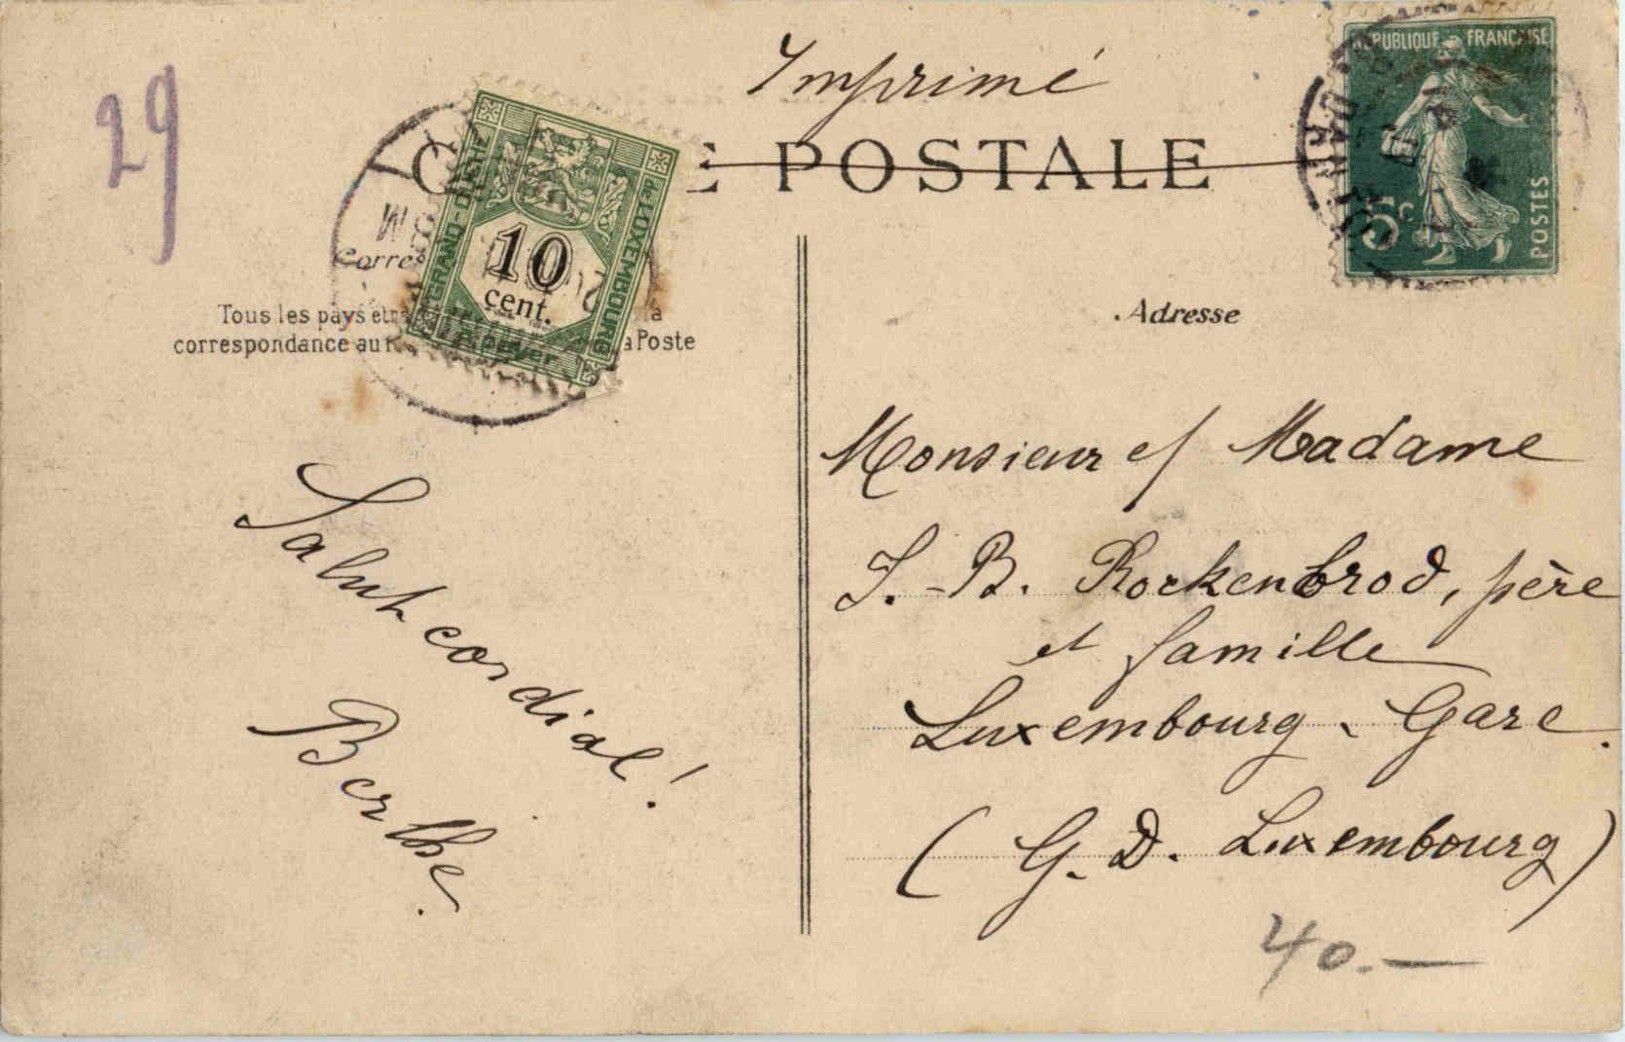 29
Imprimé
C E POSTALE
RÉPUBLIQUE FRANÇAISE
5c
POSTES
GRAND-DUCHÉ
DE LUXEMBOURG
10
cent.
à percevoir
Corres
Tous les pays étra à la
correspondance au r la Poste
Adresse
Salut cordial!
Berthe.
Monsieur et Madame
J.-B. Rockenbrod, père
et famille
Luxembourg-Gare.
(G. D. Luxembourg)
40.—